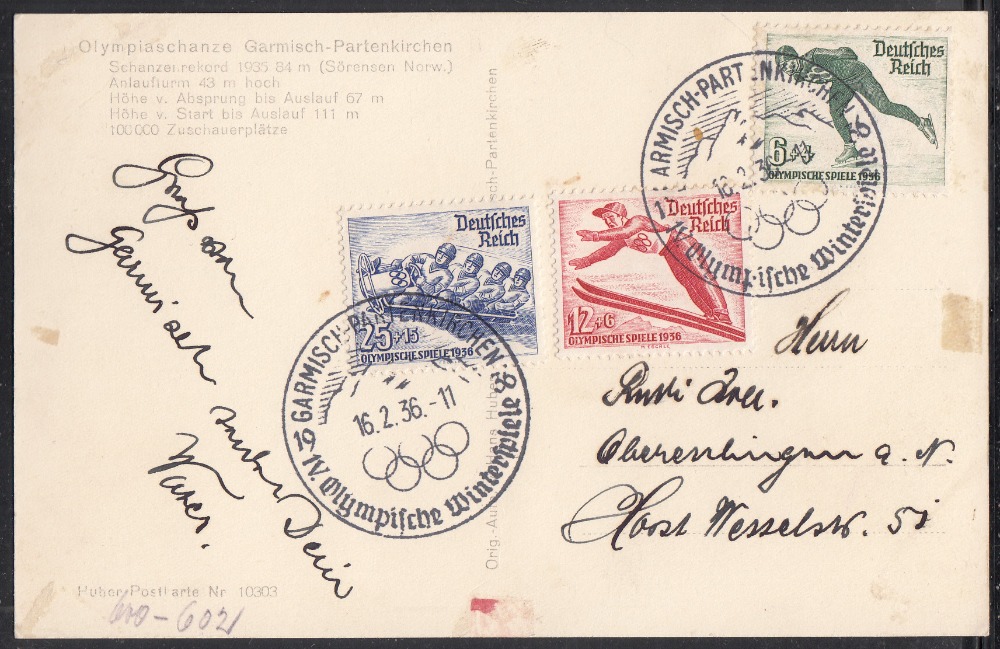 Olympiaschanze Garmisch-Partenkirchen
Schanzenrekord 1935 84 m (Sörensen Norw.)
Anlaufturm 43 m hoch
Höhe v. Absprung bis Auslauf 67 m
Höhe v. Start bis Auslauf 111 m
100000 Zuschauerplätze
Gruß von
Garmisch
sendet Dein
Vater.
Huber Postkarte Nr 10303
600-6021
Orig.-Au Hans Huber sch-Partenkirchen
Deutsches
Reich
25+15
OLYMPISCHE SPIELE 1936
Deutsches
Reich
12+6
OLYMPISCHE SPIELE 1936
Deutsches
Reich
6+4
OLYMPISCHE SPIELE 1936
GARMISCH-PARTENKIRCHEN
16.2.36.-11
19 IV. Olympische Winterspiele
ARMISCH-PARTENKIRCHEN
16.2.36
IV. Olympische Winterspiele
Herrn
Oberesslingen a. N.
Horst Wesselstr. 51